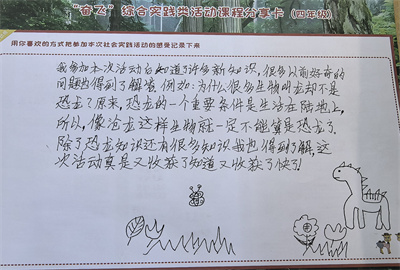 “奋飞”综合实践类活动课程分享卡（四年级）
用你喜欢的方式把参加本次社会实践活动的感受记录下来
我参加本次活动后知道了许多新知识，很多以前好奇的
问题也得到了解答。例如：为什么很多生物叫龙却不是
恐龙？原来，恐龙的一个重要条件是生活在陆地上，
所以，像沧龙这样生物就一定不能算是恐龙了。
除了恐龙知识还有很多知识我也得到了解，这
次活动真是又收获了知道又收获了快乐！